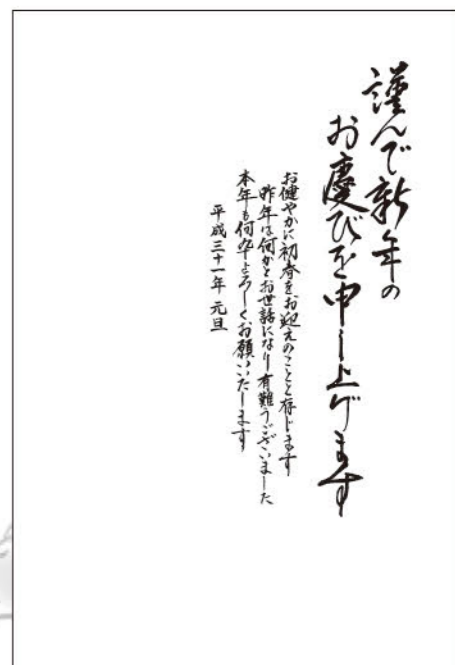 謹んで新年の
お慶びを申し上げます
お健やかに初春をお迎えのことと存じます
昨年は何かとお世話になり有難うございました
本年も何卒よろしくお願いいたします
平成三十一年 元旦